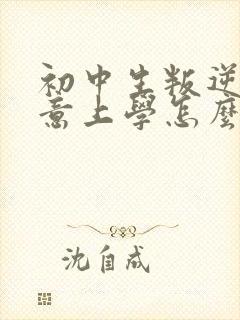 初中生叛逆
意上學怎麼
沈自成